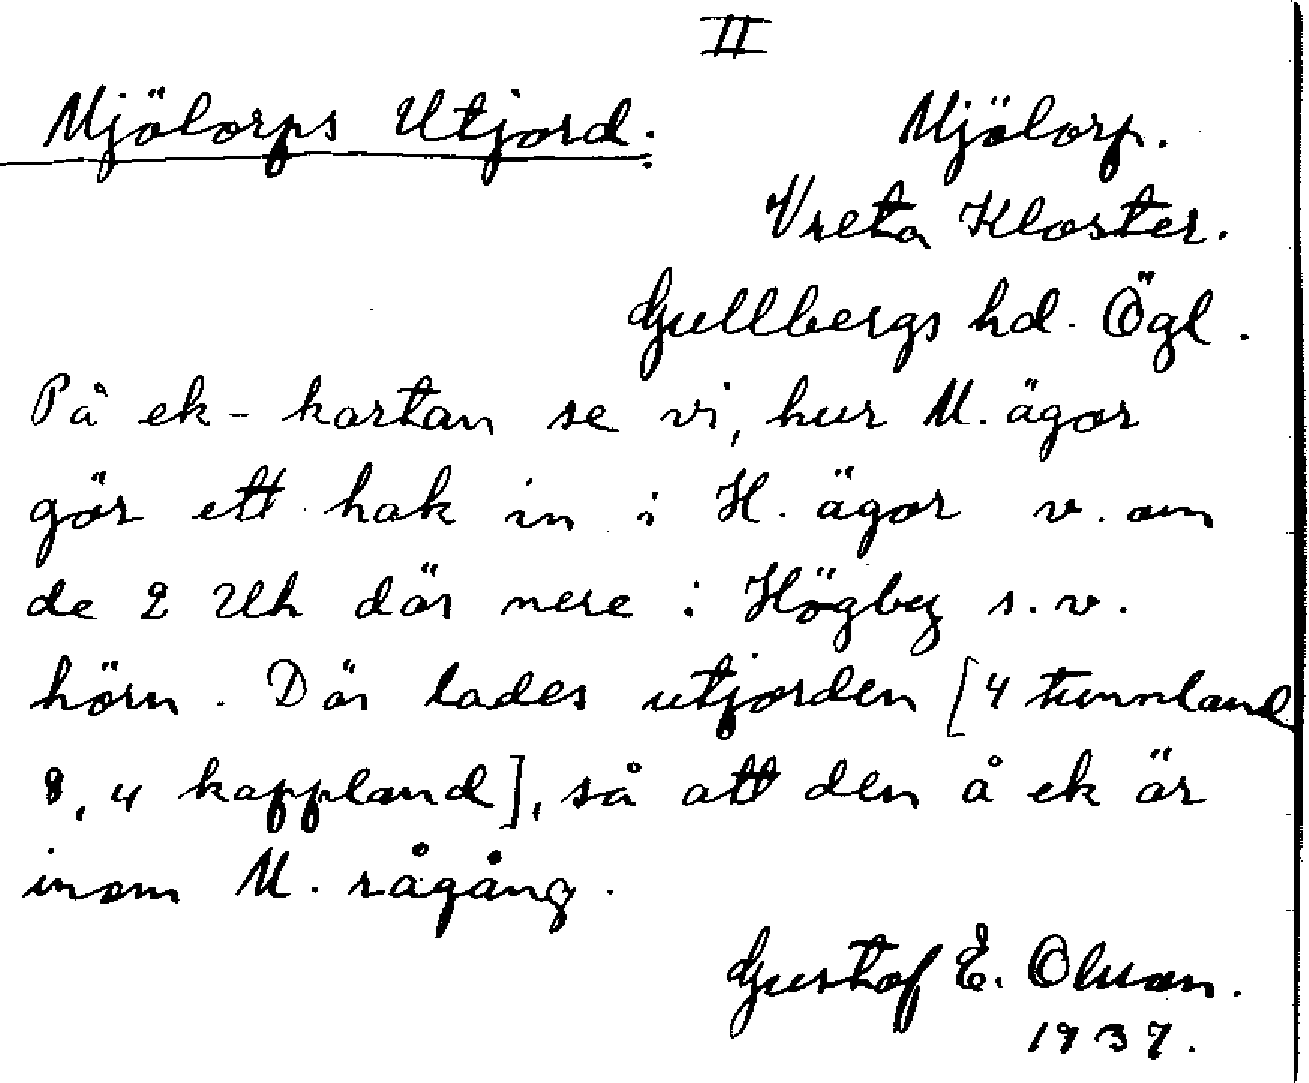 II
Mjölorps Utjord. Mjölorp.
Vreta Kloster.
Gullbergs hd. Ögl.
På ek-kartan se vi, hur M. ägor
gör ett hak in i H. ägor v. om
de 2 Uh där nere i Högby s.v.
hörn. Där lades utjorden [4 tunnland
8,4 kappland], så att den å ek är
inom M. rågång.
Gustaf E. Olsson.
1937.